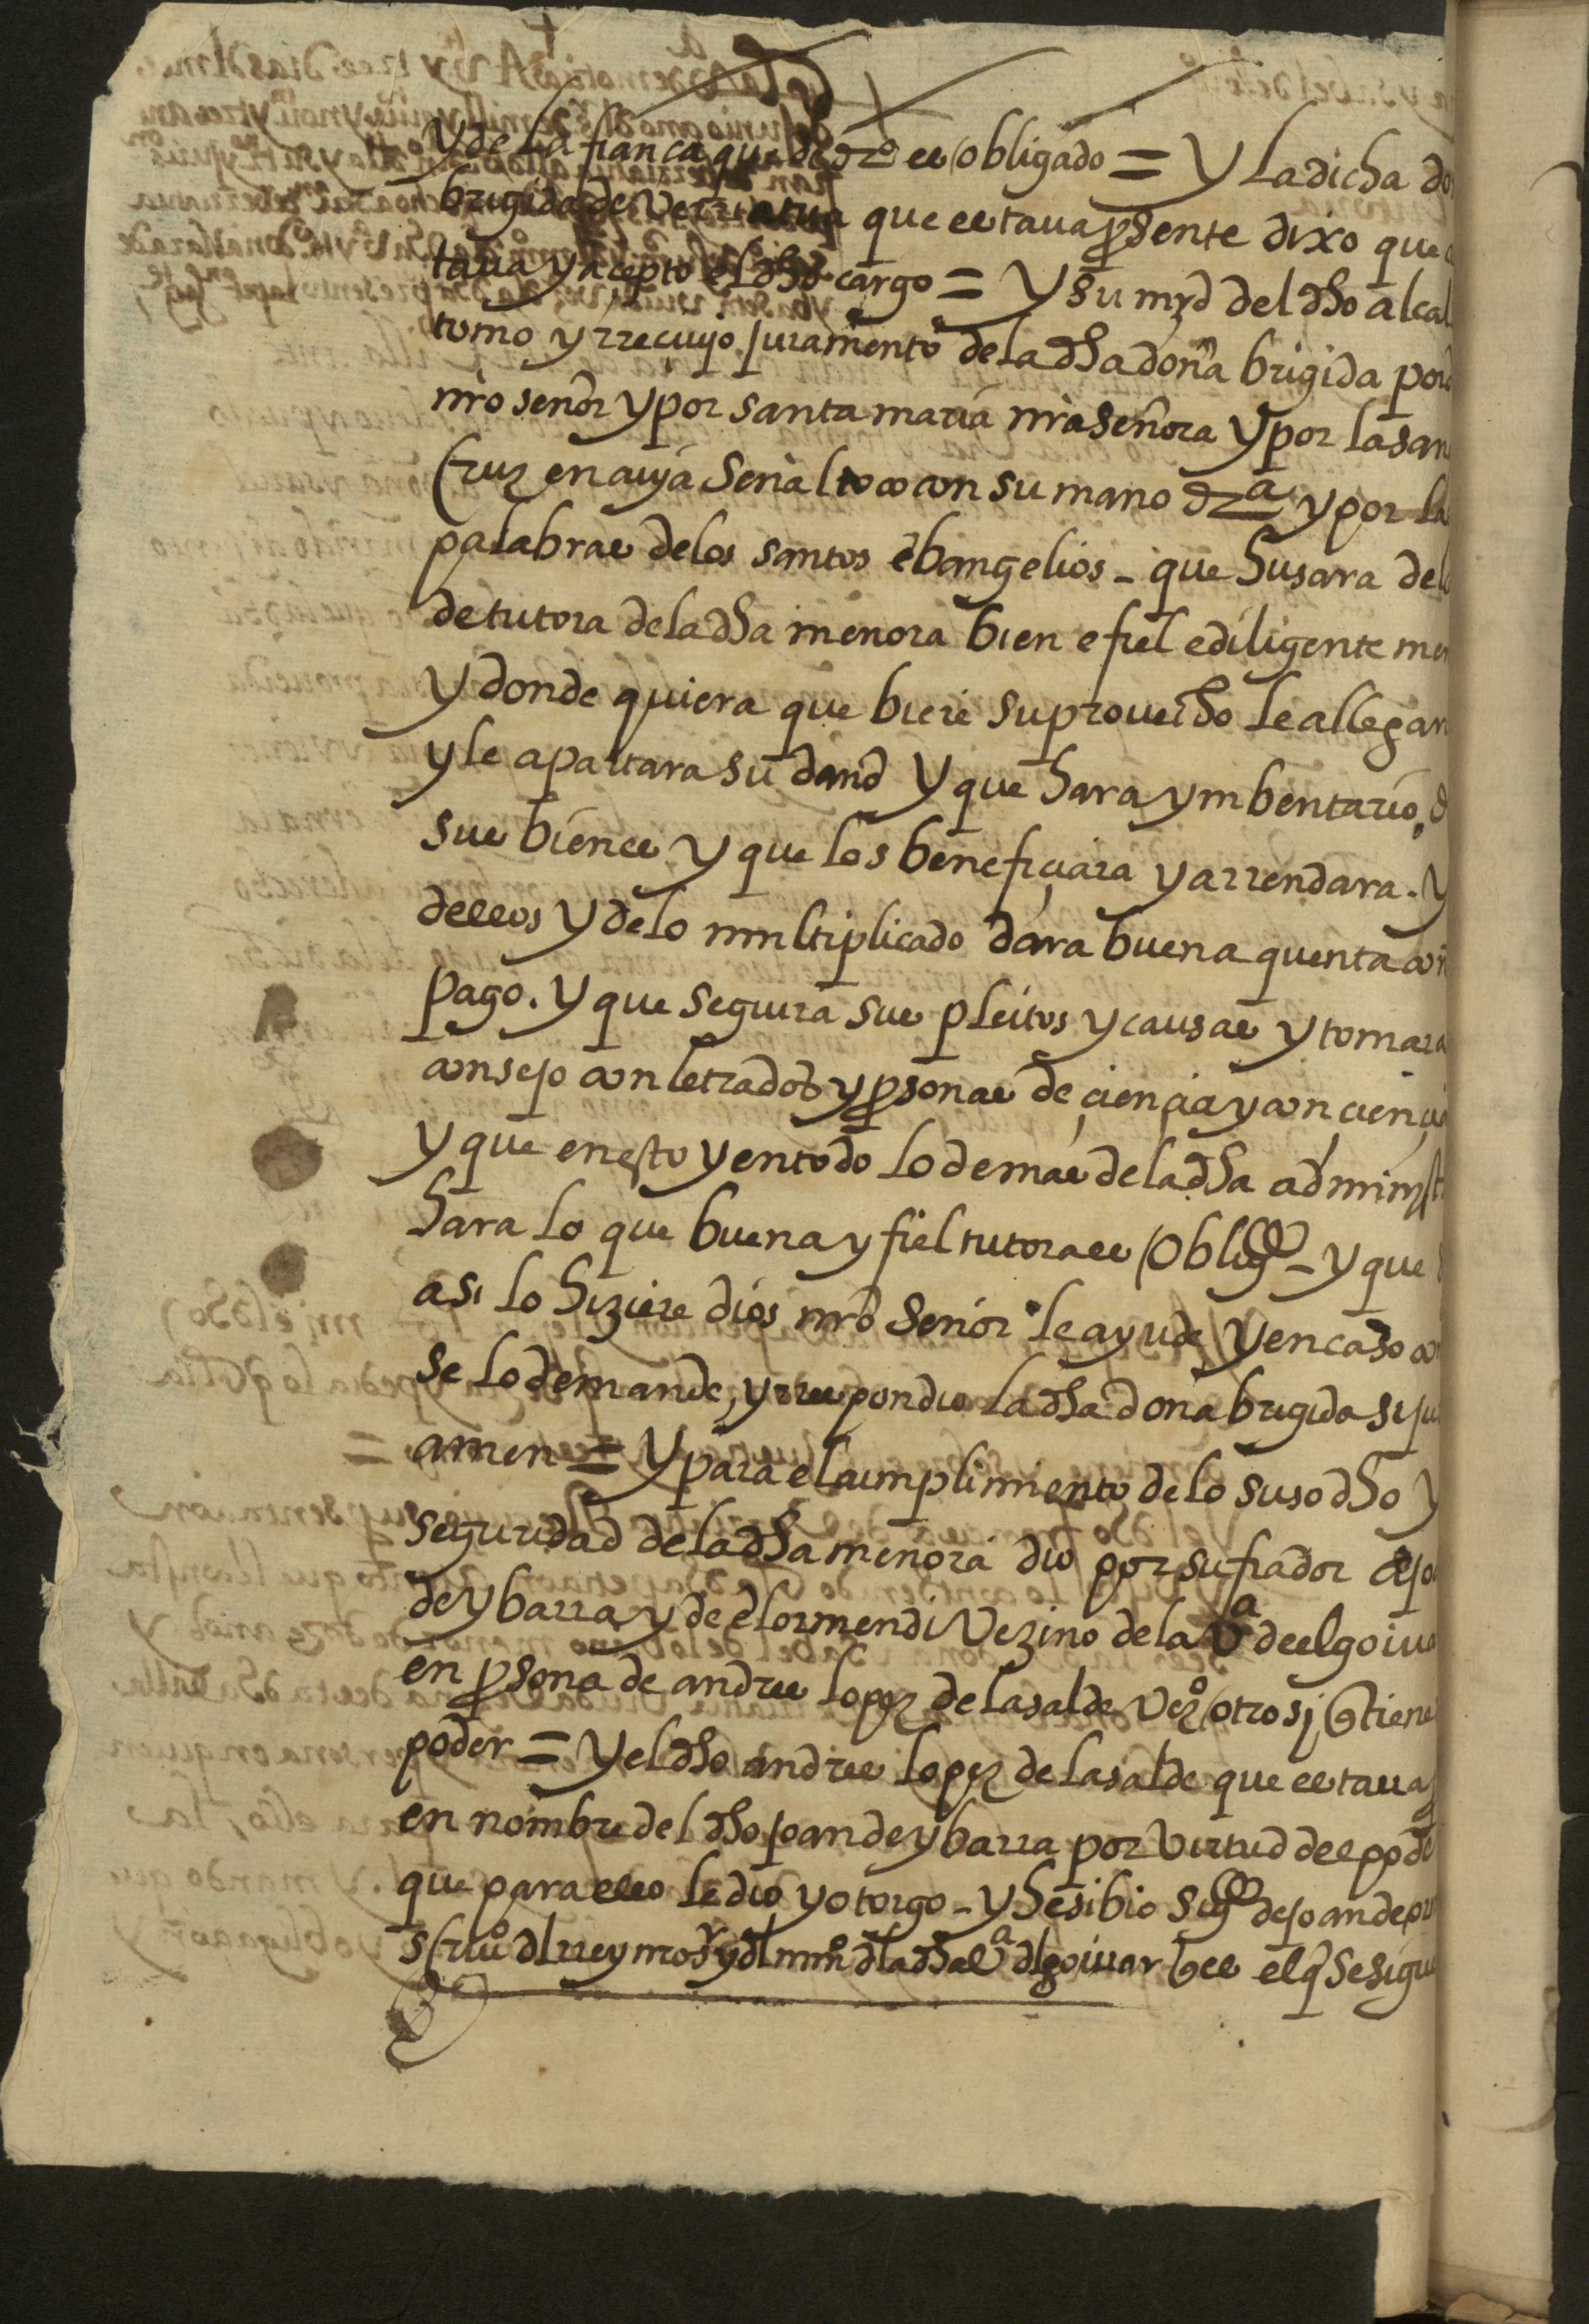 y de la fianca que de drº es obligado = Y la dicha do
brigida de verriatua que estaua presente dixo que
taua y acepto el dho cargo = Y su mrd del dho alcal
tomo y rrecuyo juramento de la dha doña brigida por
nro señor y por santa maria nra señora y por la san
Cruz en cuya señal toco con su mano drª y por la
palabras de los santos ebangelios - que husara del
de tutora de la dha menora bien e fiel e diligente men
y donde quiera que biere su prouecho le allegar
y le apartara su daño y que hara ymbentario, d
sus bienes y que los beneficiara y arrendara. y
dellos y de lo multiplicado dara buena quenta con
pago. y que seguira sus pleitos y causas y tomara
consejo con letrados y psonas de ciencia y conciencia
y que en esto y en todo lo demas de la dha administ
hara lo que buena y fiel tutora es oblig - y que
asi lo hiziere dios nro señor le ayude y en caso con
se lo demande, y rrespondio la dha doña brigida si ju
amen = Y para el cumplimiento de lo suso dho y
seguridad de la dha menora dio por su fiador a jo
de ybarra y de elormendi Vezino de la vª de elgoiua
en psona de andres lopez de lasalde vezº otrosi tiene
poder = Y el dho andres lopez de lasalde que estaua
en nombre del dho joan de ybarra por virtud del pode
que para ello le dio y otorgo - y hesibio sig de joan de
scriuº dl rrey nro sr y dl numº d la dha vª dlgoiuar que es el q se sigu